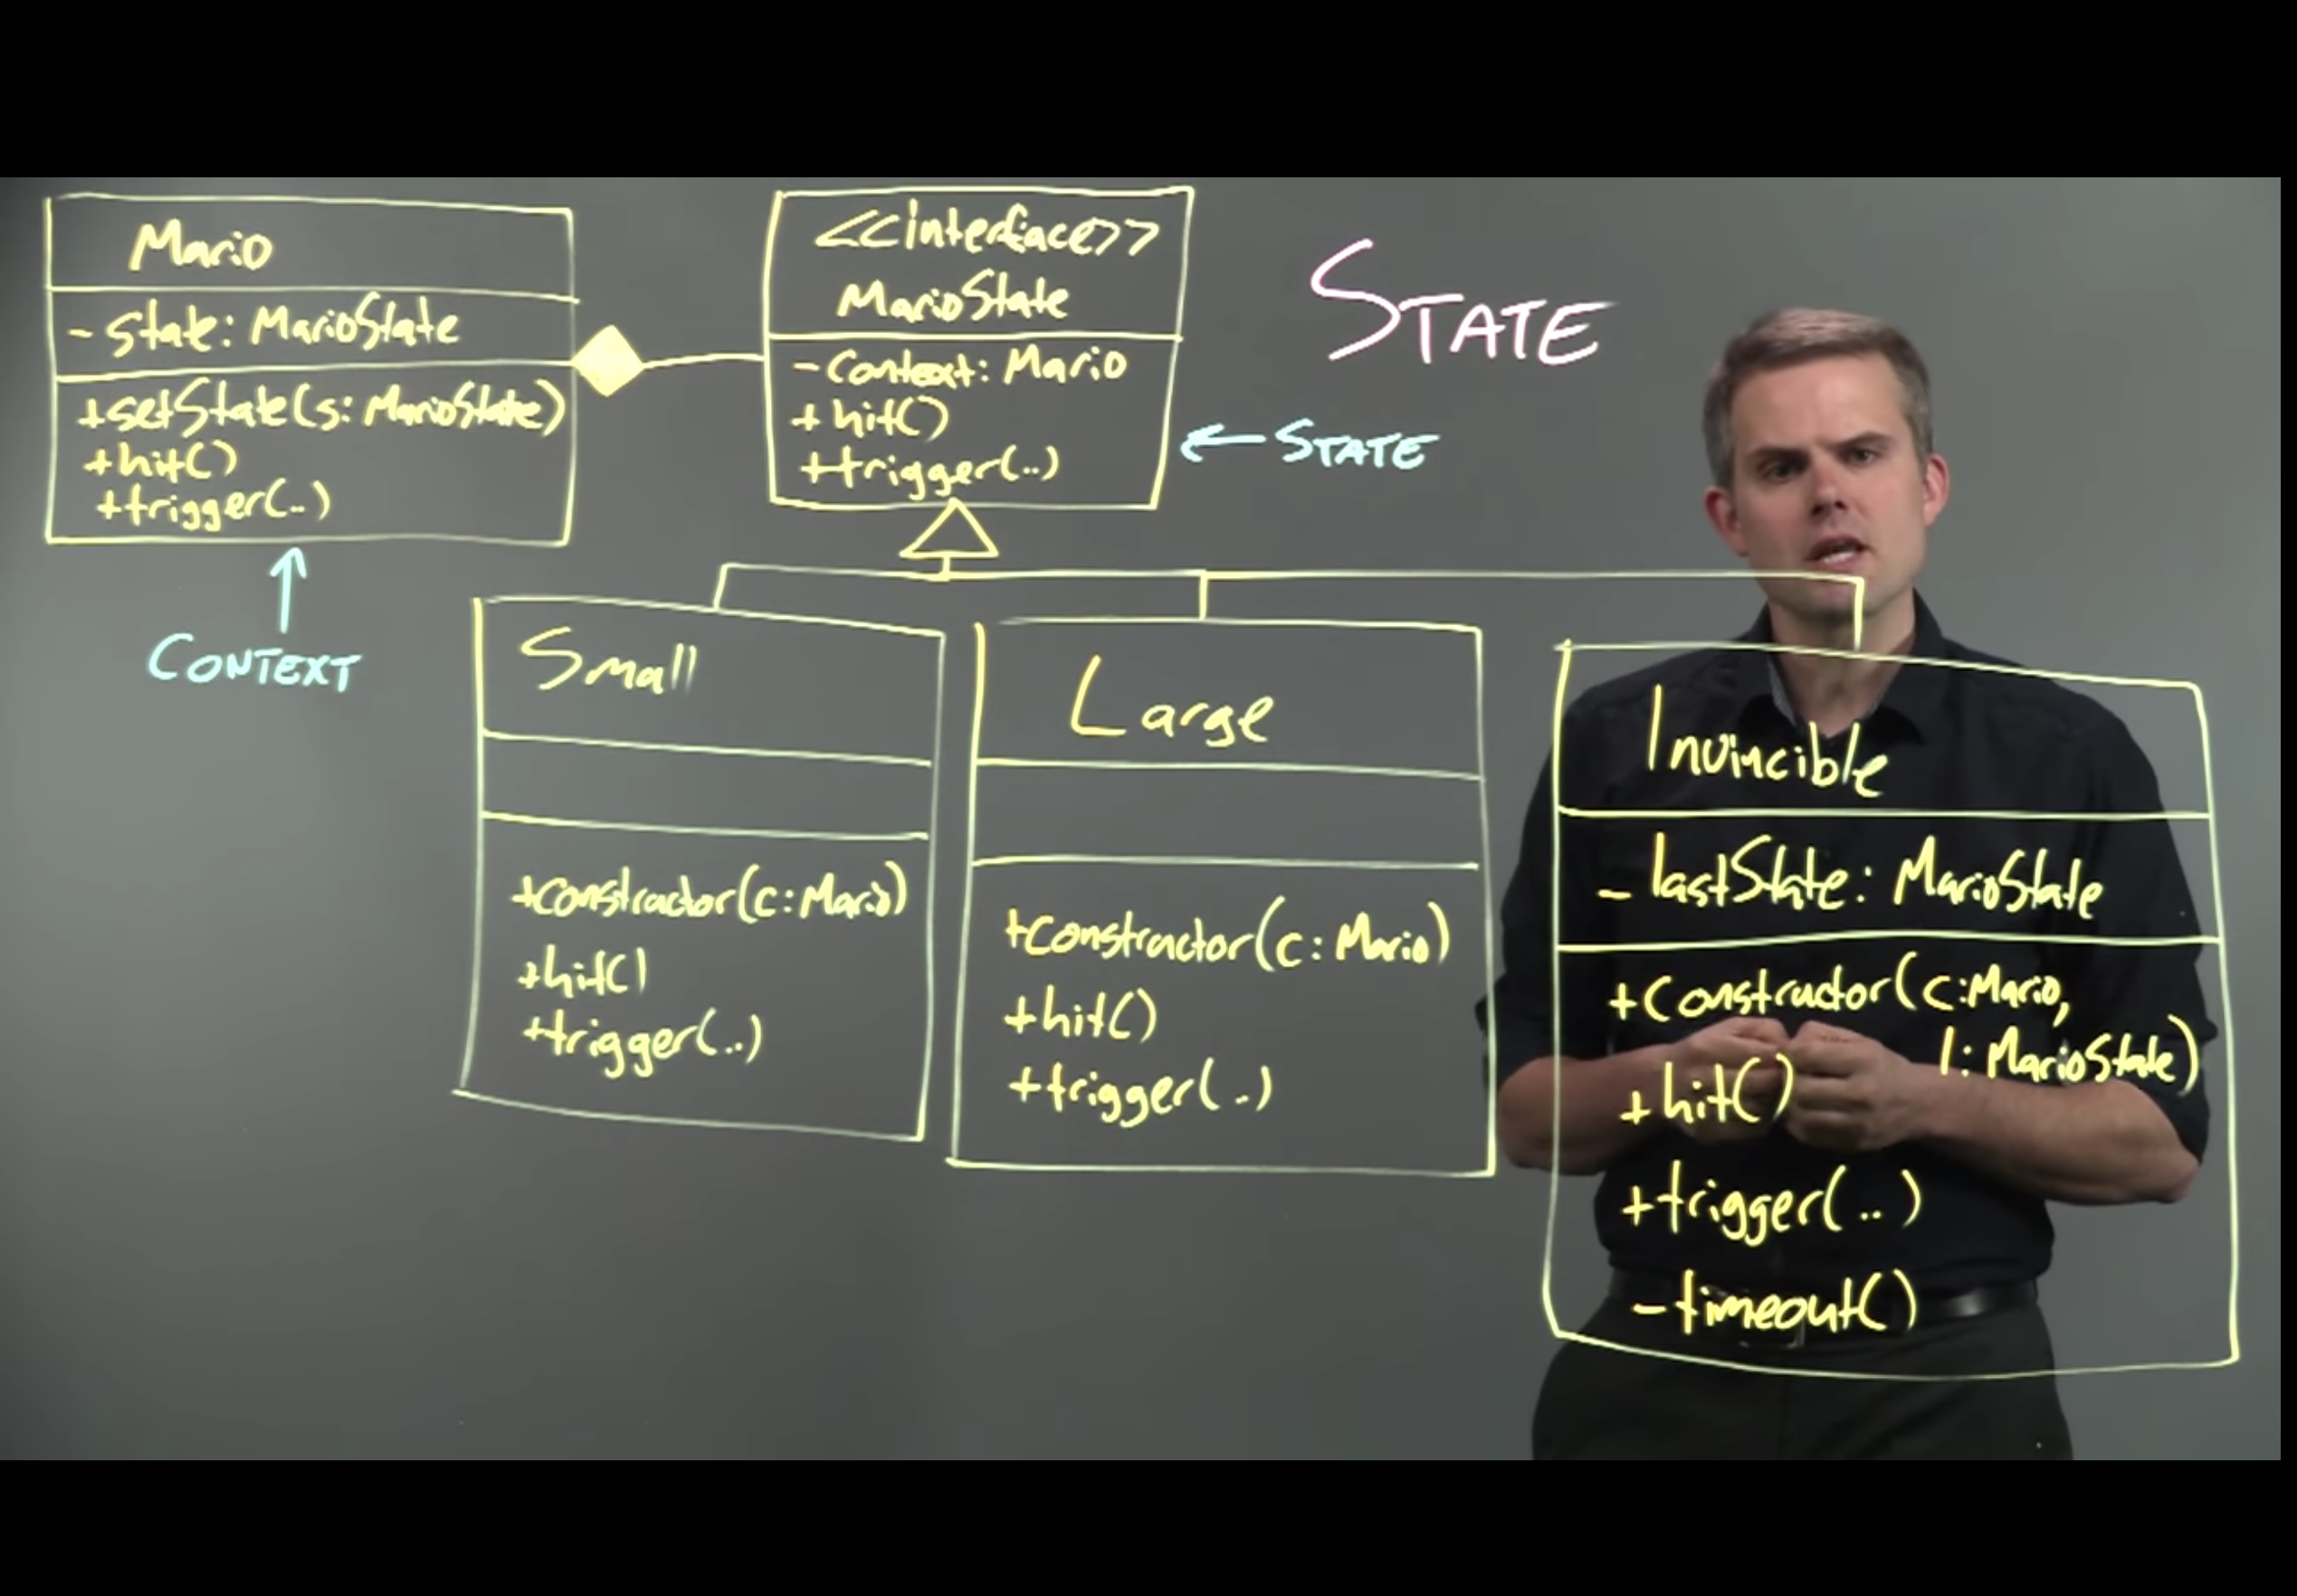 Mario
- state: MarioState
+setState(s: MarioState)
+hit()
+trigger(..)
CONTEXT
<<interface>>
MarioState
- context: Mario
+ hit()
+trigger(..)
STATE
← STATE
Small
+constructor(c: Mario)
+hit()
+trigger(..)
Large
+constructor(c: Mario)
+hit()
+trigger(..)
Invincible
- lastState: MarioState
+constructor(c: Mario,
l: MarioState)
+hit()
+trigger(..)
- timeout()